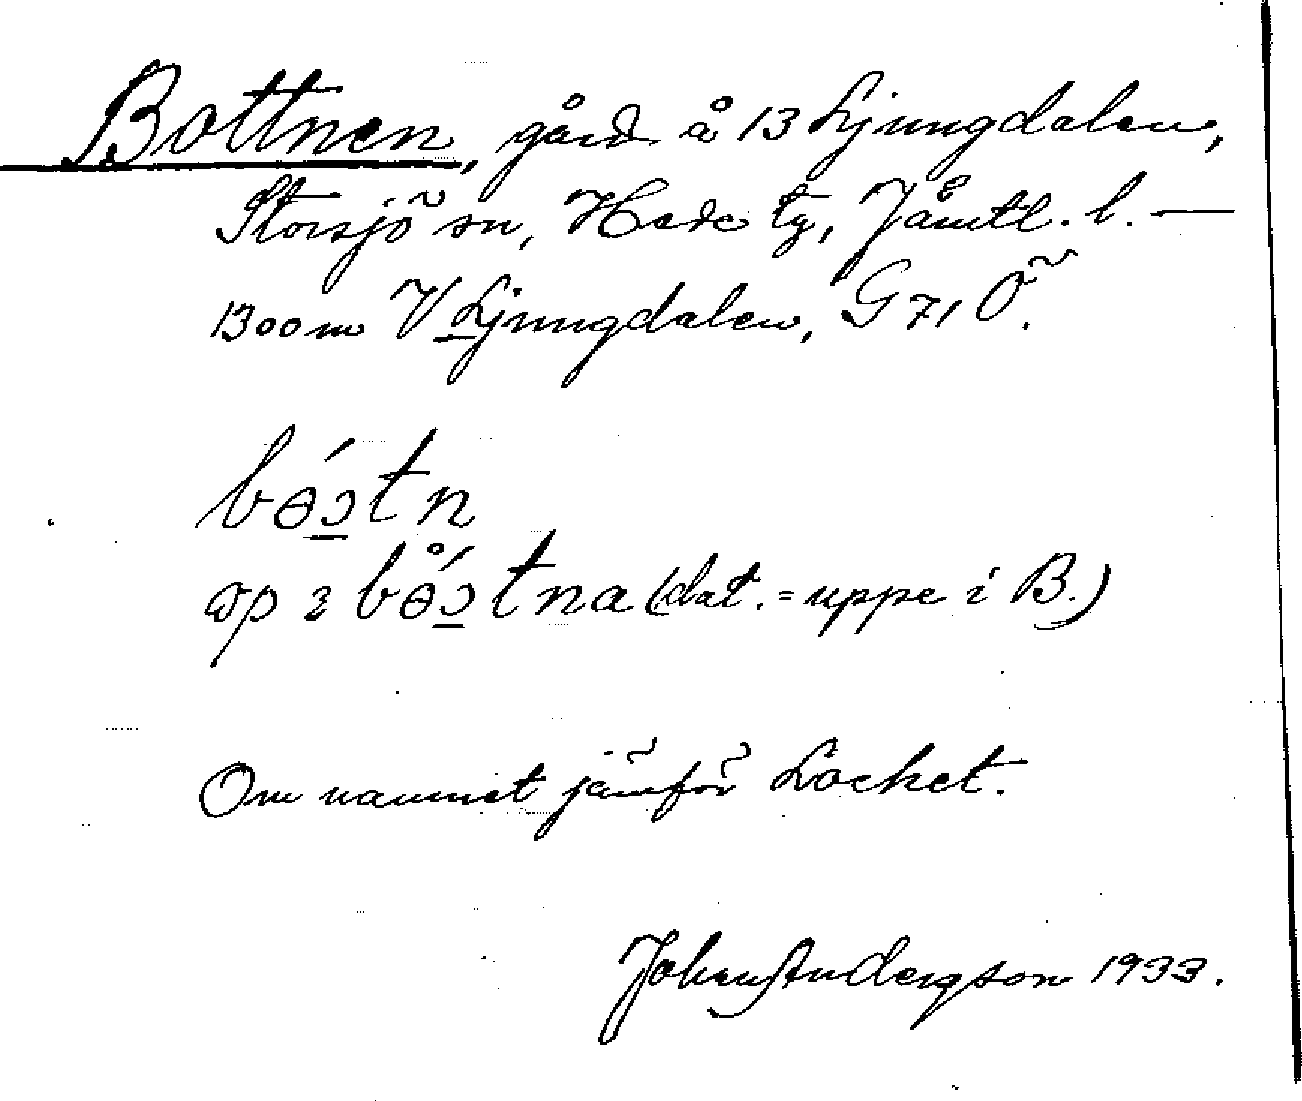 Bottnen, gård å 13 Ljungdalen,
Storsjö sn, Hede tg, Jämtl. l. —
1300 m V Ljungdalen, G 71 Ö.
bɵ́ɔtn
op ɿ bɵ̊́ɔtna (dat. = uppe i B.)
Om namnet jämför Locket.
Johan Andergson 1933.